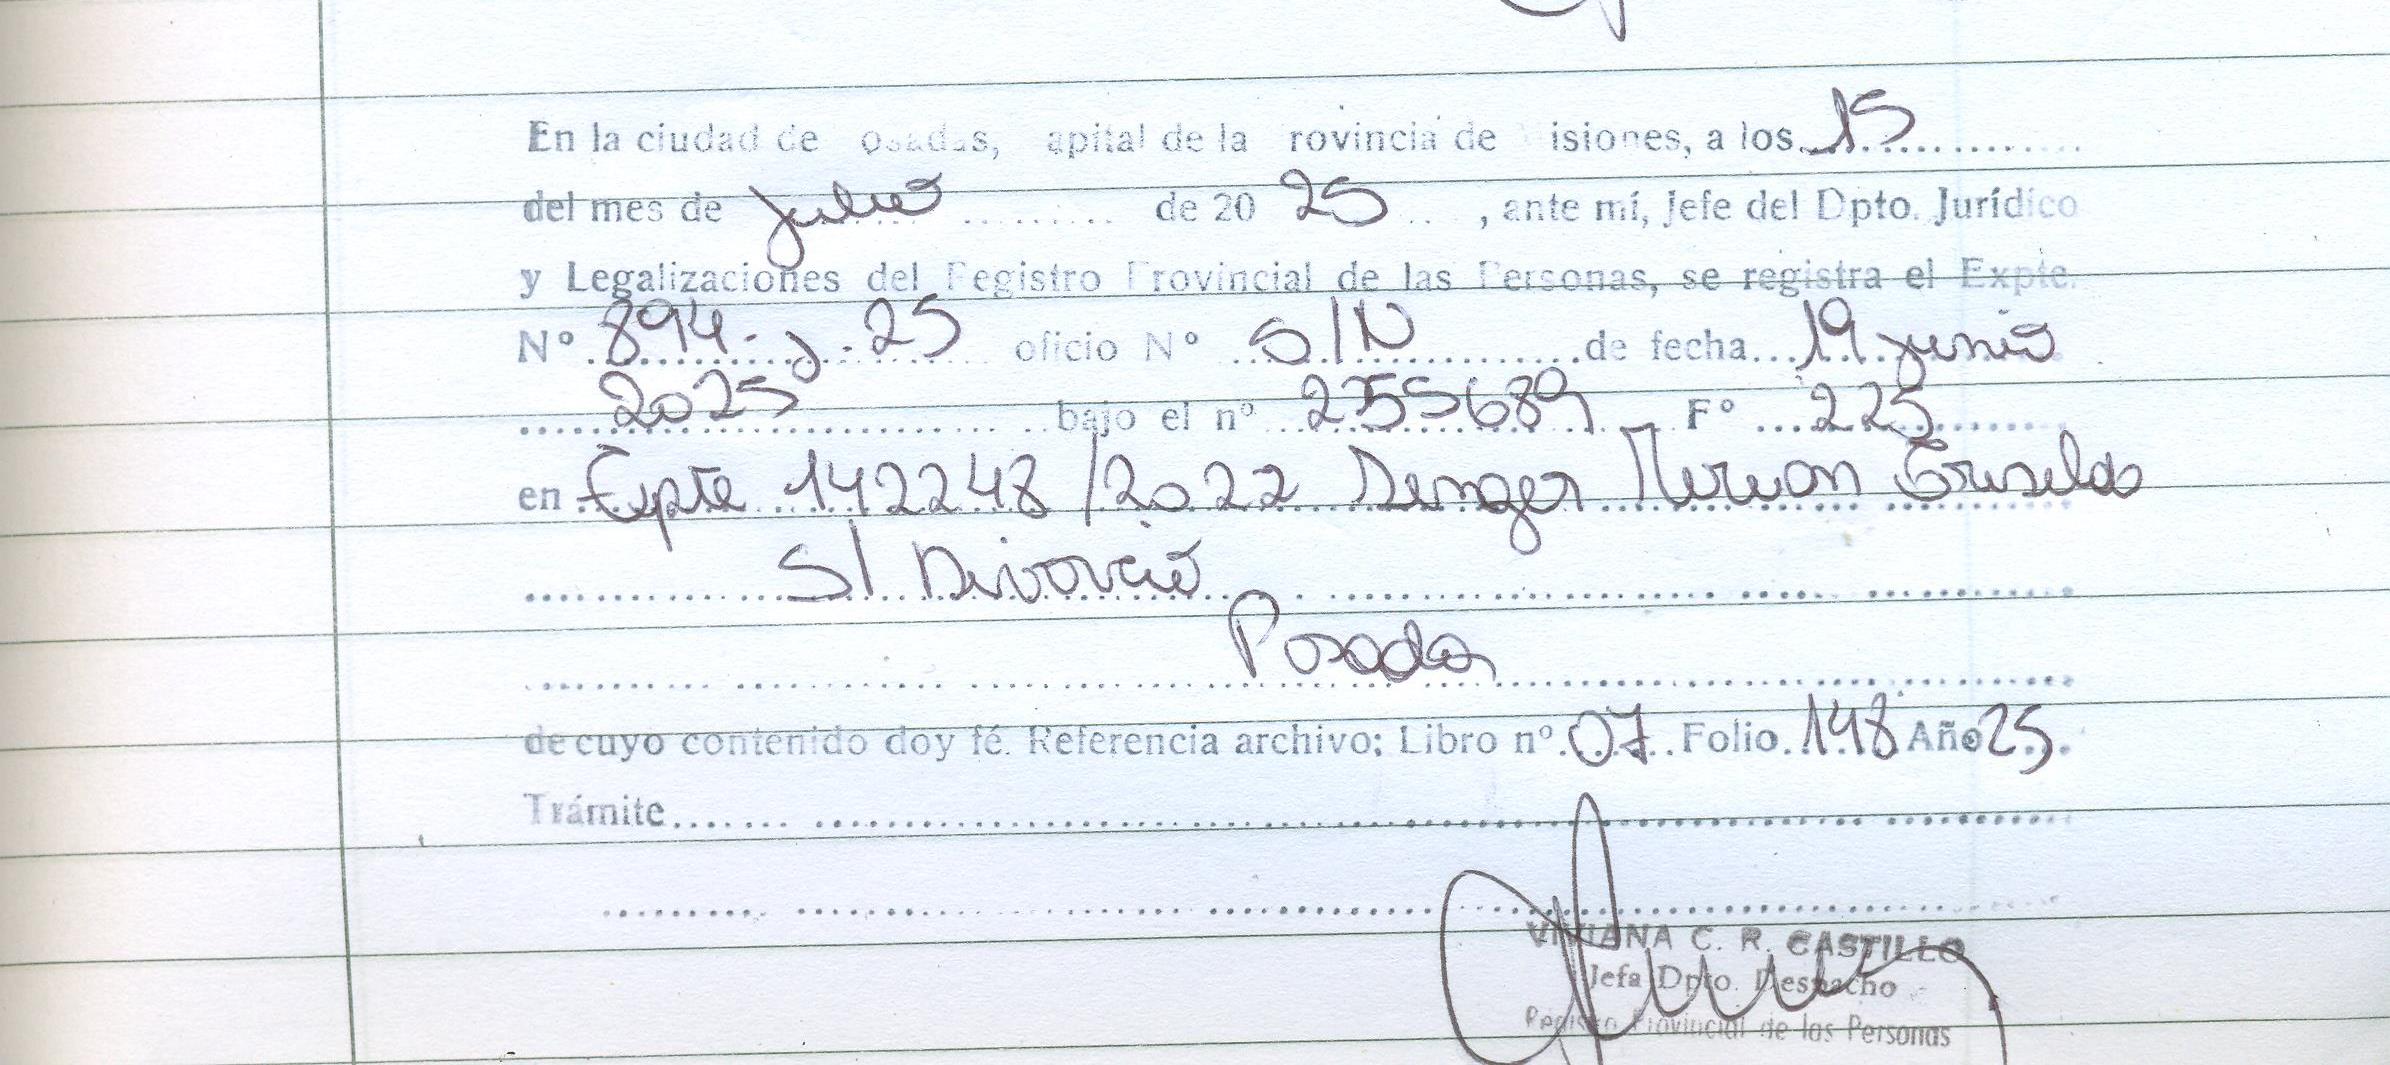 En la ciudad de osadas, apital de la rovincia de isiones, a los 15
del mes de julio de 20 25, ante mí, Jefe del Dpto. Jurídico
y Legalizaciones del Registro Provincial de las Personas, se registra el Expte.
Nº 894-J-25 oficio Nº S/N de fecha 19 junio
2025 bajo el nº 255689 Fº 225
en Expte 142248/2022 Denger Mirian Griselda
S/ Divorcio
Posadas
de cuyo contenido doy fé. Referencia archivo; Libro nº 07 Folio 148 Año 25
Trámite
VIVIANA C. R. CASTILLO
Jefa Dpto. Despacho
Registro Provincial de las Personas